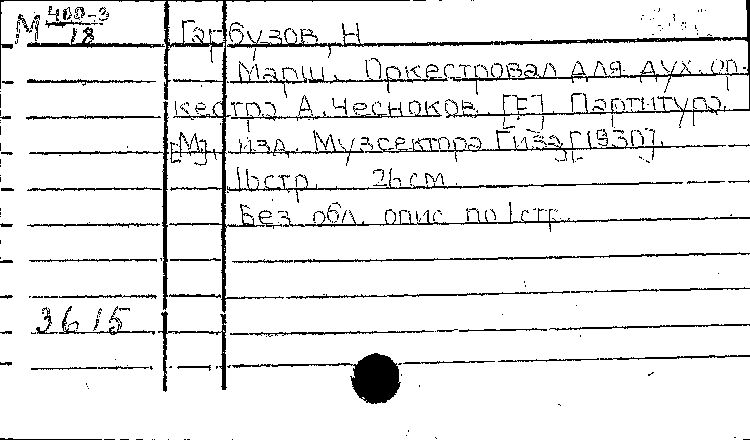 М 400-3
18
Гарбузов, Н
Марш. Оркестровал для дух. ор-
кестра А. Чесноков. [F]. Партитура.
[М], изд. Музсектора Гиза, [1930].
16 стр. 26 см.
Без обл. опис по 1 стр.
3615